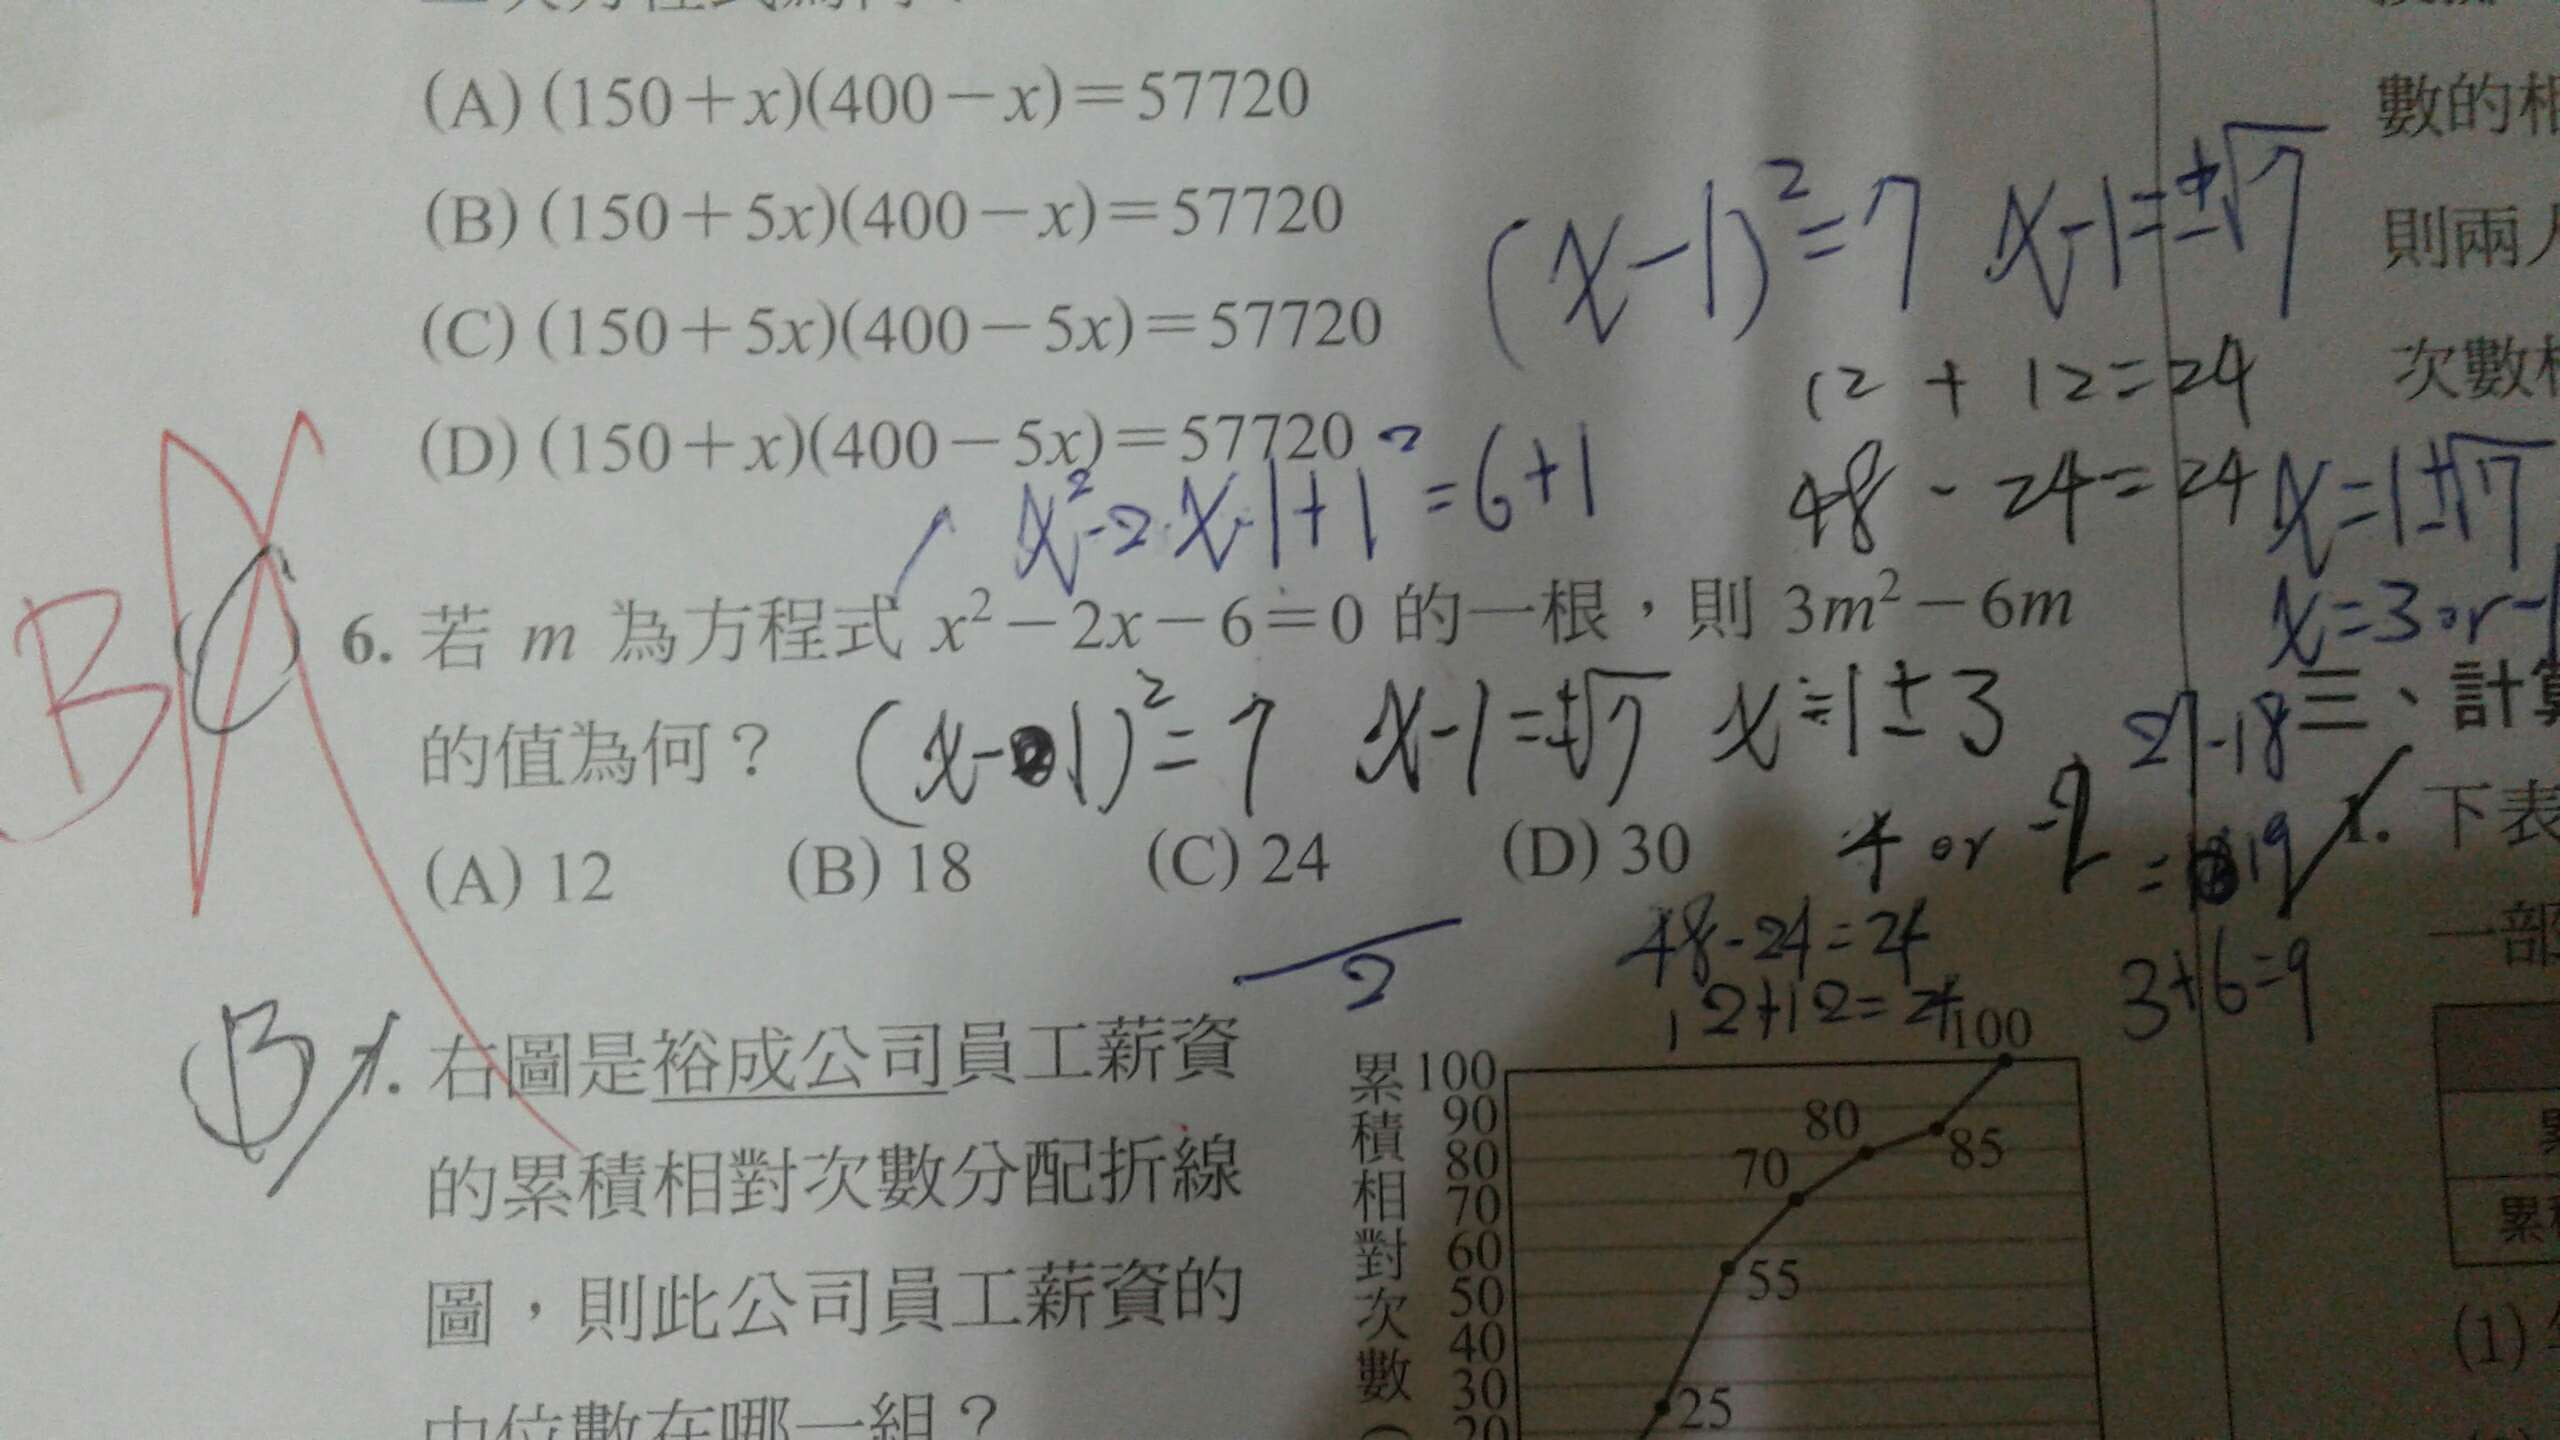 (A) (150+x)(400-x)=57720
數的相
(B) (150+5x)(400-x)=57720
(x-1)²=7 x-1=±√7
則兩人
(C) (150+5x)(400-5x)=57720
12+12=24
次數相
(D) (150+x)(400-5x)=57720
48-24=24
x=1±√7
x²-2·x·1+1²=6+1
x=3 or -1
B
C
6. 若 m 為方程式 x²-2x-6=0 的一根，則 3m²-6m
的值為何？
(x-1)²=7 x-1=±√7 x≒1±3
27-18
三、計算
4 or -2
=19
1. 下表
(A) 12 (B) 18 (C) 24 (D) 30
48-24=24
12+12=24
3+6=9
2
一部
B
7. 右圖是裕成公司員工薪資
的累積相對次數分配折線
圖，則此公司員工薪資的
中位數在哪一組？
累積相對次數
100
90
80
70
60
50
40
30
20
100
85
80
70
55
25
累積
(1)